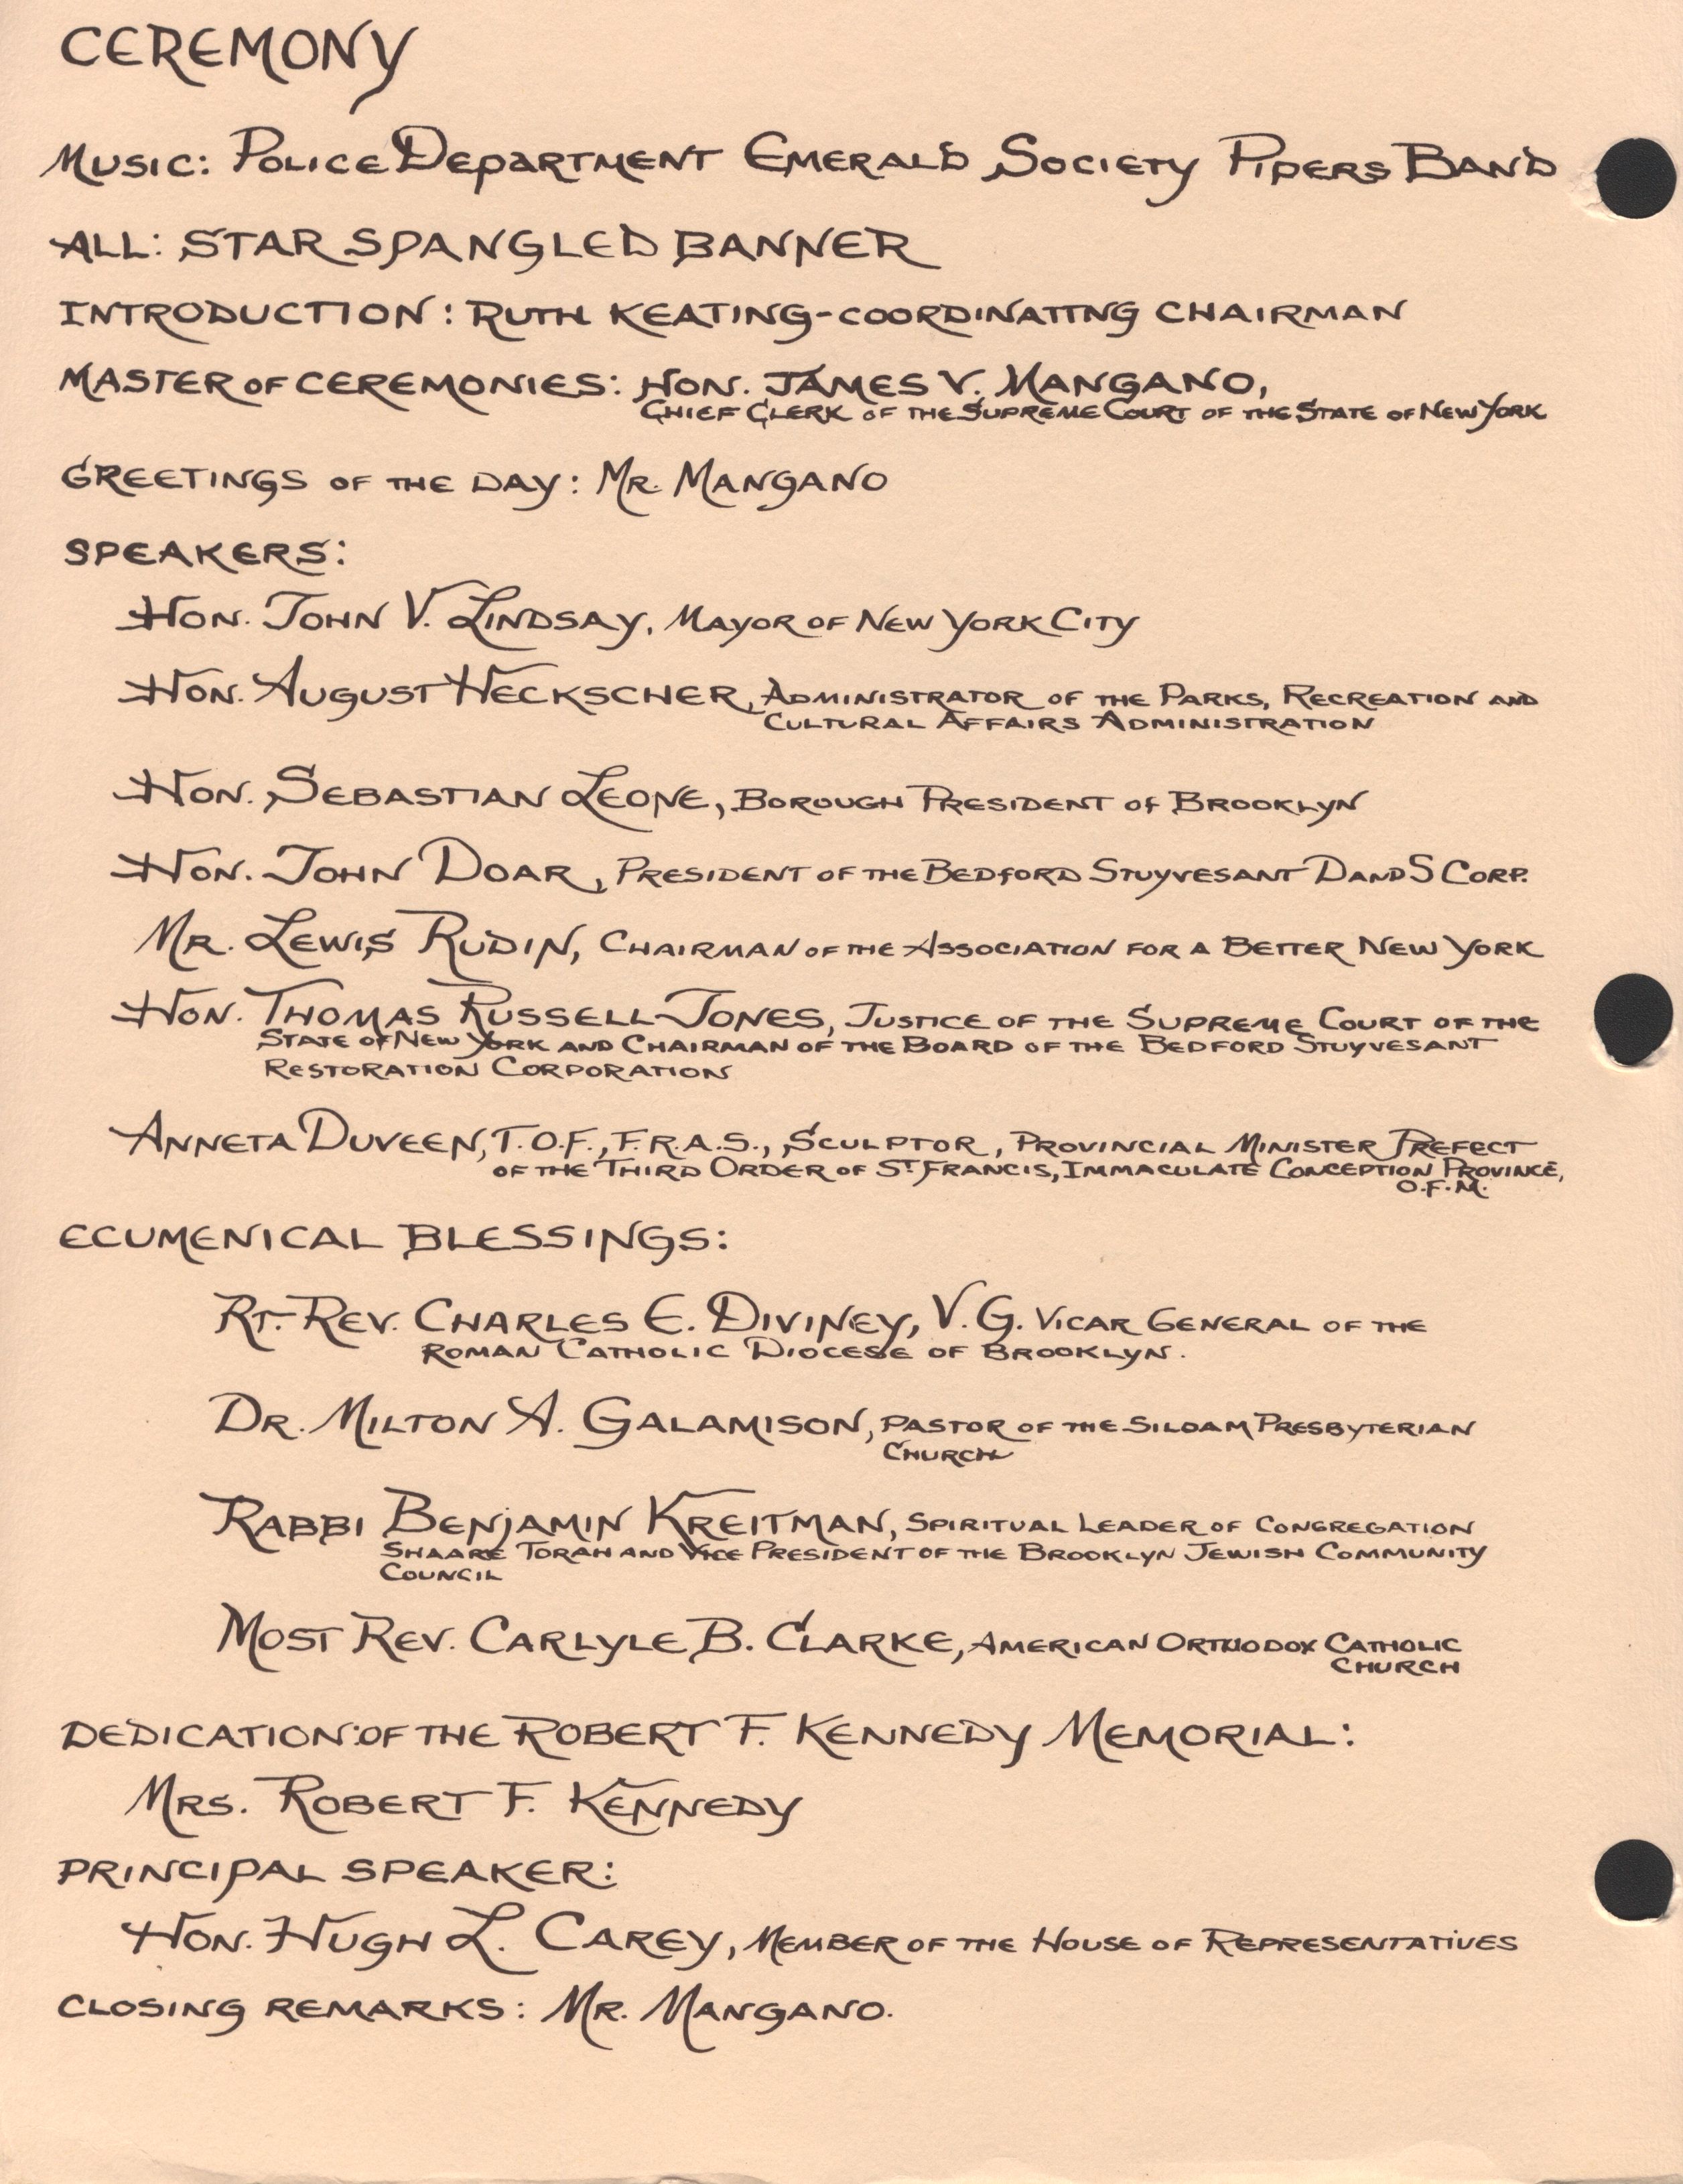 CEREMONY
MUSIC: POLICE DEPARTMENT EMERALD SOCIETY PIPERS BAND
ALL: STAR SPANGLED BANNER
INTRODUCTION: RUTH KEATING-COORDINATING CHAIRMAN
MASTER OF CEREMONIES: HON. JAMES V. MANGANO,
CHIEF CLERK OF THE SUPREME COURT OF THE STATE OF NEW YORK
GREETINGS OF THE DAY: MR. MANGANO
SPEAKERS:
HON. JOHN V. LINDSAY, MAYOR OF NEW YORK CITY
HON. AUGUST HECKSCHER, ADMINISTRATOR OF THE PARKS, RECREATION AND
CULTURAL AFFAIRS ADMINISTRATION
HON. SEBASTIAN LEONE, BOROUGH PRESIDENT OF BROOKLYN
HON. JOHN DOAR, PRESIDENT OF THE BEDFORD STUYVESANT D AND S CORP.
MR. LEWIS RUDIN, CHAIRMAN OF THE ASSOCIATION FOR A BETTER NEW YORK
HON. THOMAS RUSSELL JONES, JUSTICE OF THE SUPREME COURT OF THE
STATE OF NEW YORK AND CHAIRMAN OF THE BOARD OF THE BEDFORD STUYVESANT
RESTORATION CORPORATION
ANNETA DUVEEN, T.O.F., F.R.A.S., SCULPTOR, PROVINCIAL MINISTER PREFECT
OF THE THIRD ORDER OF ST. FRANCIS, IMMACULATE CONCEPTION PROVINCE,
O.F.M.
ECUMENICAL BLESSINGS:
RT. REV. CHARLES E. DIVINEY, V.G. VICAR GENERAL OF THE
ROMAN CATHOLIC DIOCESE OF BROOKLYN.
DR. MILTON A. GALAMISON, PASTOR OF THE SILOAM PRESBYTERIAN
CHURCH
RABBI BENJAMIN KREITMAN, SPIRITUAL LEADER OF CONGREGATION
SHAARE TORAH AND VICE PRESIDENT OF THE BROOKLYN JEWISH COMMUNITY
COUNCIL
MOST REV. CARLYLE B. CLARKE, AMERICAN ORTHODOX CATHOLIC
CHURCH
DEDICATION OF THE ROBERT F. KENNEDY MEMORIAL:
MRS. ROBERT F. KENNEDY
PRINCIPAL SPEAKER:
HON. HUGH L. CAREY, MEMBER OF THE HOUSE OF REPRESENTATIVES
CLOSING REMARKS: MR. MANGANO.